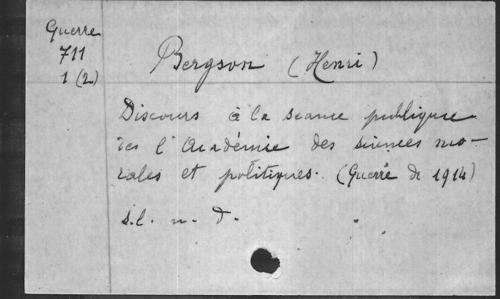 Guerre
711
1 (2)
Bergson (Henri)
Discours à la séance publique
de l'Académie des sciences mo-
rales et politiques. (Guerre de 1914)
s.l. n. d.